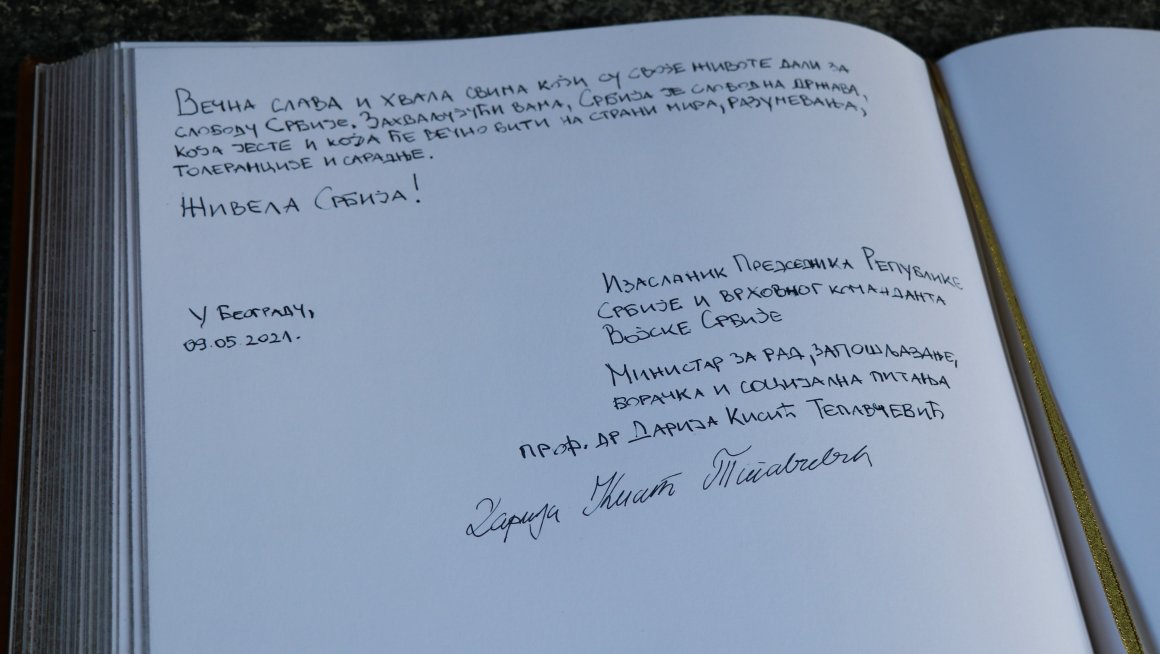 Вечна слава и хвала свима који су своје животе дали за
слободу Србије. Захваљујући вама, Србија је слободна држава,
која јесте и која ће вечно бити на страни мира, разумевања,
толеранције и сарадње.
Живела Србија!
Изасланик Председника Републике
Србије и врховног команданта
Војске Србије
У Београду,
09.05.2021.
Министар за рад, запошљавање,
борачка и социјална питања
проф. др Дарија Кисић Тепавчевић
Дарија Кисић Тепавчевић